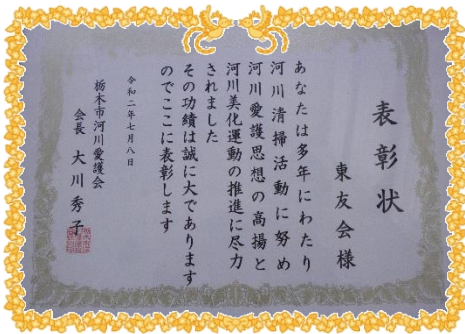 表彰状
東友会様
あなたは多年にわたり
河川清掃活動に努め
河川愛護思想の高揚と
河川美化運動の推進に尽力
されました
その功績は誠に大であります
のでここに表彰します
令和二年七月八日
栃木市河川愛護会
会長 大川秀子